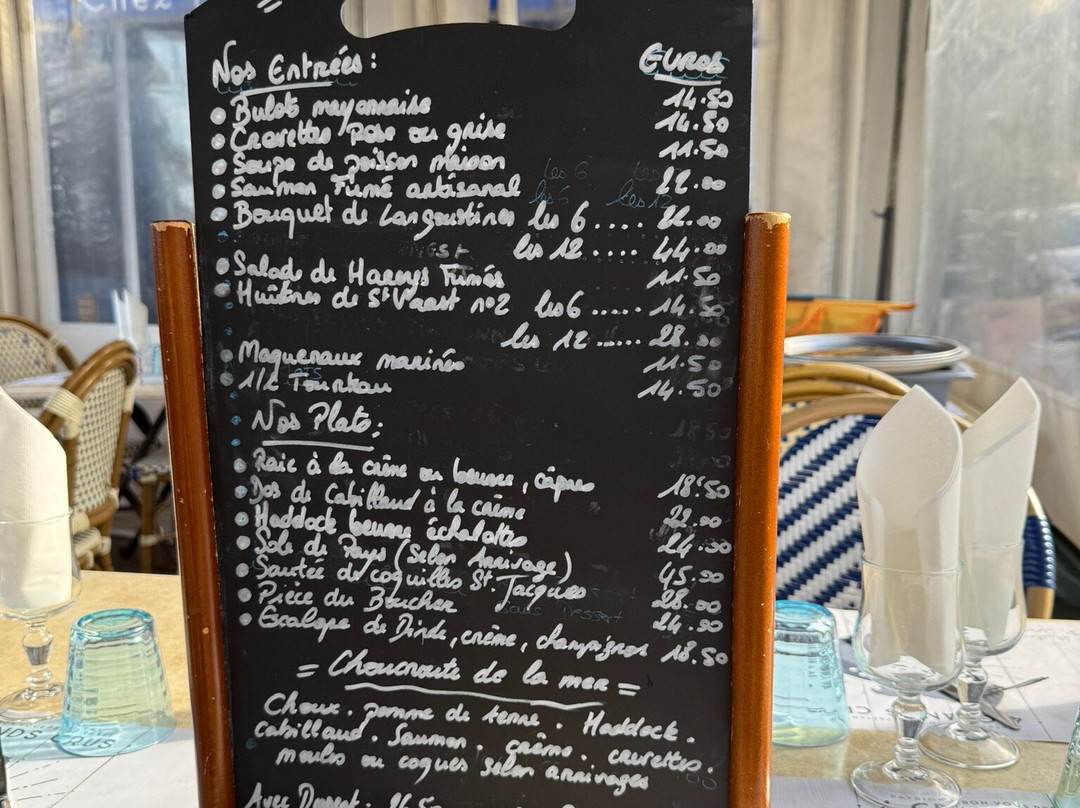 Nos Entrées : EUROS
• Bulots mayonnaise 14.50
• Crevettes rose ou grise 14.50
• Soupe de poisson maison 11.50
• Saumon Fumé artisanal 22.00
• Bouquet de Langoustines les 6 .... 22.00
les 12 .... 44.00
• Salade de Harengs Fumés 11.50
• Huîtres de St Vaast n°2 les 6 ..... 14.50
les 12 ..... 28.00
• Maquereaux marinés 11.50
• 1/2 Tourteau 14.50
Nos Plats :
• Raie à la crème ou beurre, câpres 18.50
• Dos de Cabillaud à la crème 22.00
• Haddock beurre échalottes 24.00
• Sole de Pays (Selon Arrivage) 45.00
• Sautée de coquilles St. Jacques 28.00
• Pièce du Boucher 24.00
• Escalope de Dinde, crème, champignons 18.50
= Choucroute de la mer =
Choux . pomme de terre . Haddock .
cabillaud . Saumon . crème . crevettes .
moules ou coques selon arrivages
Avec Dessert :